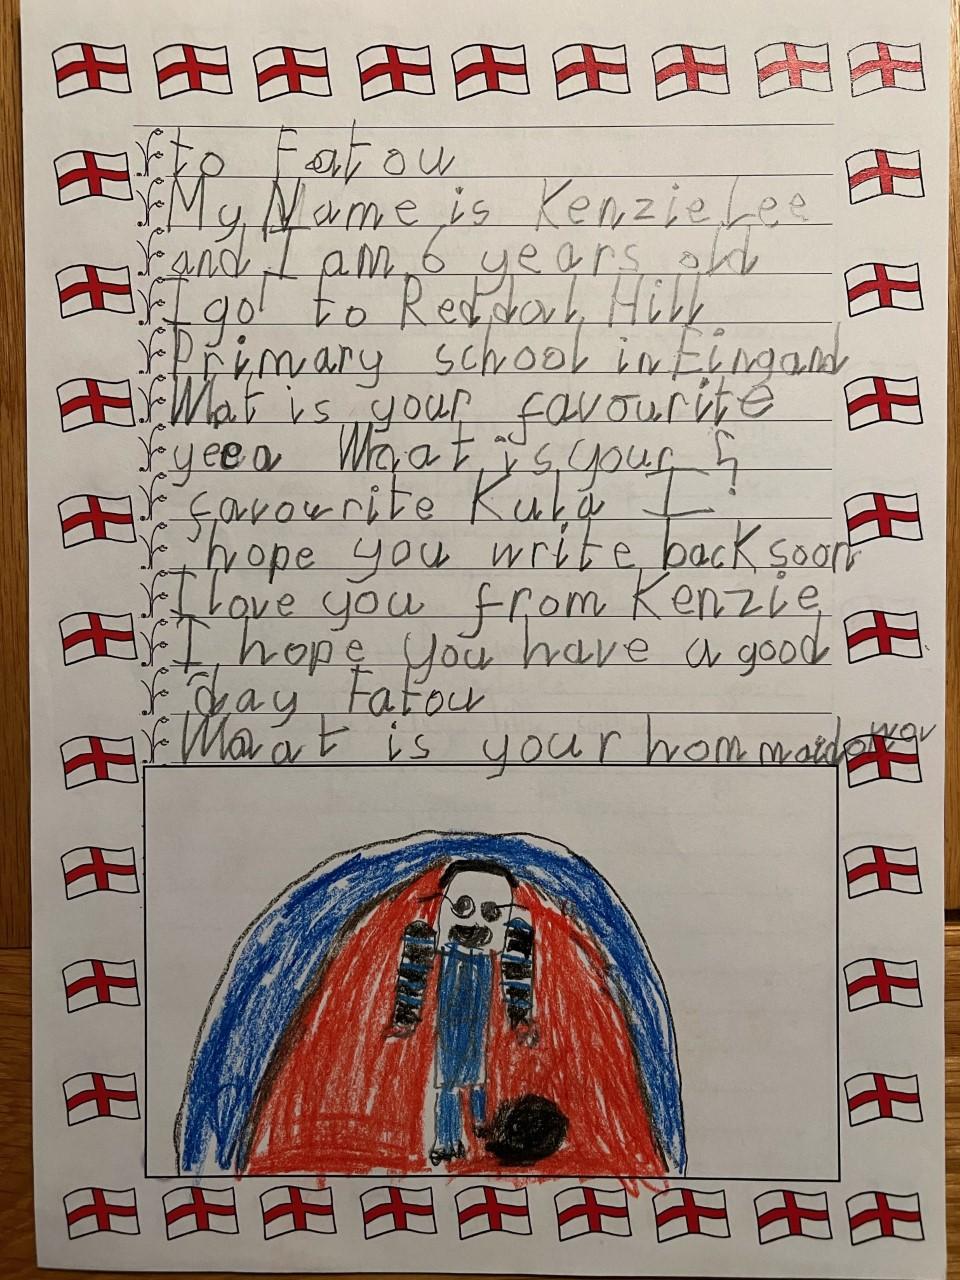 to Fatou
My Name is Kenzie Lee
and I am 6 years old
I go to Reddal Hill
Primary school in Eingand
What is your favourite
yeea What is your ?
favourite Kula I
hope you write back soon
I love you from Kenzie
I hope you have a good
day Fatou
Waat is your hom